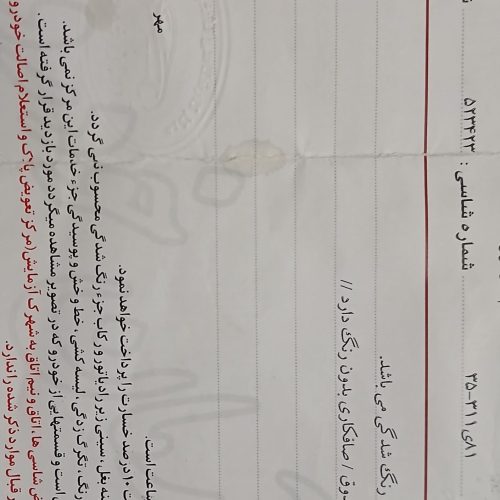 ۵۲۳۴۲۳ شماره شاسی : ۸۱ی۳۱۱-۳۵
رنگ شدگی می باشد.
وق / صافکاری بدون رنگ دارد //
مهر
ساعت است.
۱۰ درصد خسارت را پرداخت خواهد نمود.
نه بغل ، سینی زیر رادیاتور و رکاب جزء رنگ شدگی محسوب نمی گردد.
رنگ ، تگرگ زدگی ، لیسه کشی ، خط و خش و پوسیدگی جزء خدمات این مرکز نمی باشد.
است و قسمتهایی از خودرو که در تصویر مشاهده میگردد مورد بازدید قرار گرفته است.
ض شاسی ها ، اتاق و نیم اتاق به شهرک آزمایش (مرکز تعویض پلاک و استعلام اصالت خودرو
قبال موارد ذکر شده را ندارد.